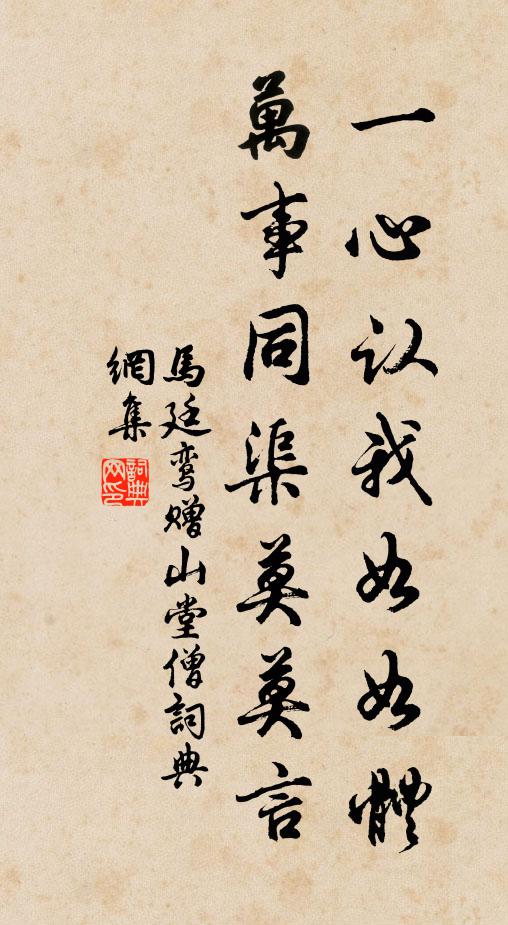 一心认我如如體
萬事同渠莫莫言
馬廷鸾贈山堂僧詞典
網集
詞典網印